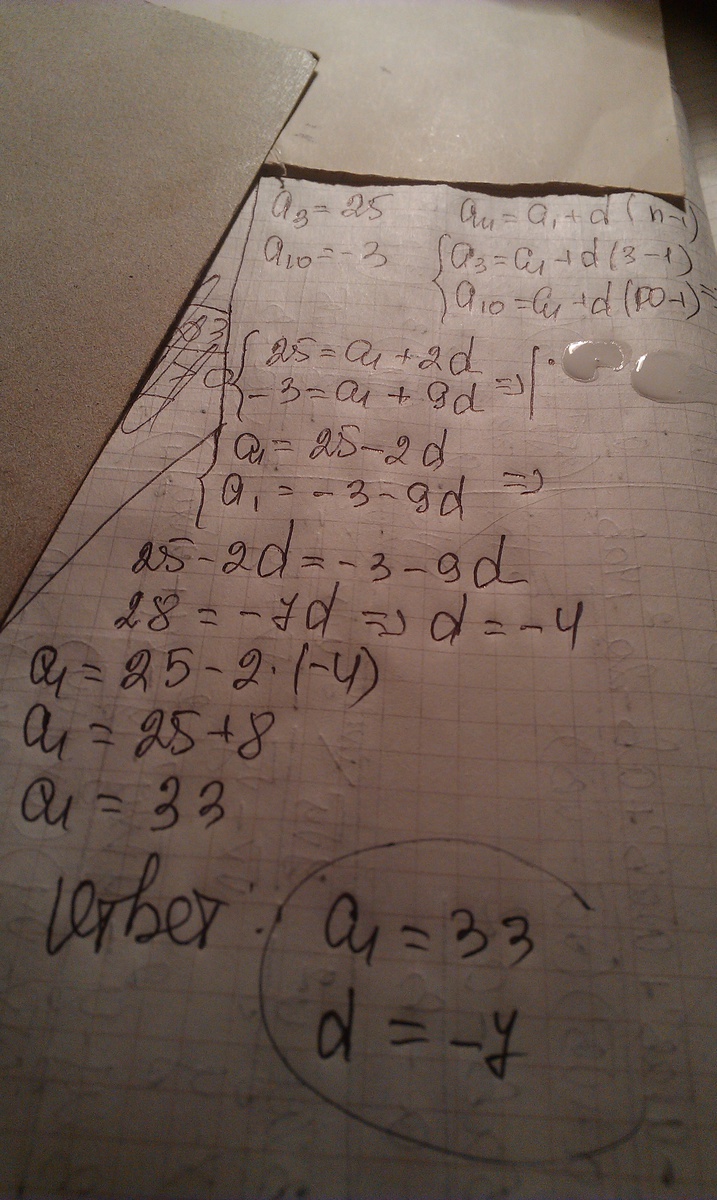 a₃ = 25
a₁₀ = -3
aₙ = a₁ + d(n-1)
{ a₃ = a₁ + d(3-1)
a₁₀ = a₁ + d(10-1) =
{ 25 = a₁ + 2d
-3 = a₁ + 9d =>
{ a₁ = 25 - 2d
a₁ = -3 - 9d =>
25 - 2d = -3 - 9d
28 = -7d => d = -4
a₁ = 25 - 2·(-4)
a₁ = 25 + 8
a₁ = 33
Ответ:
a₁ = 33
d = -7